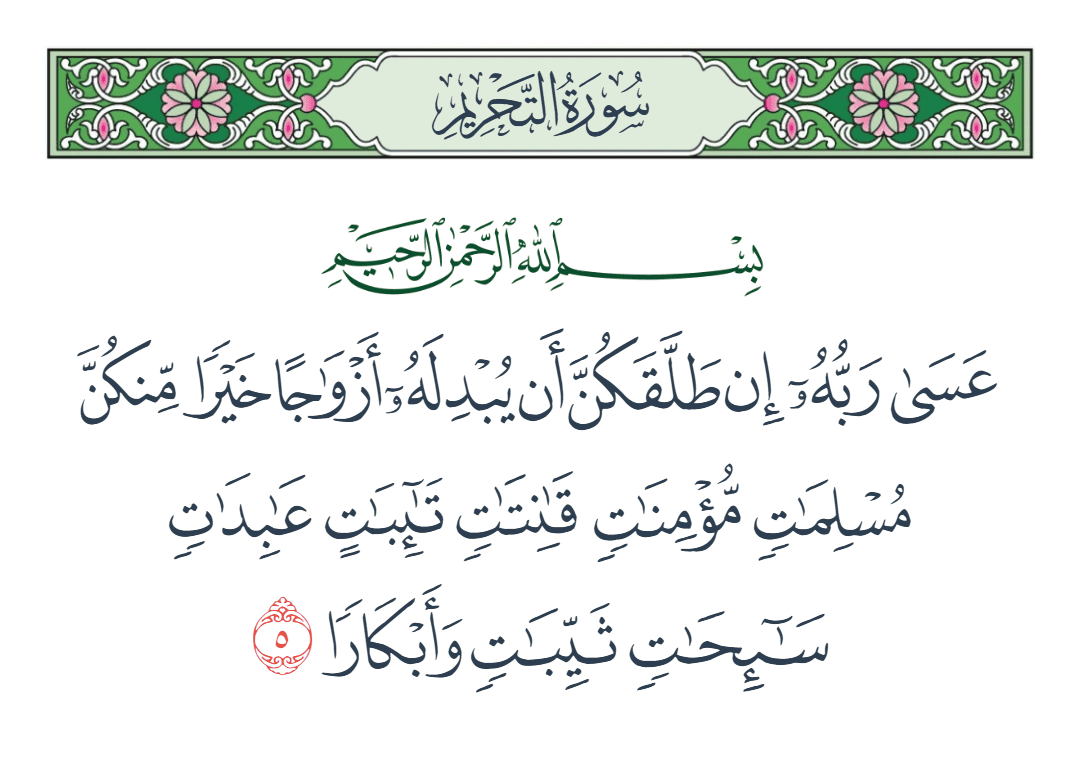 سُورَةُ التَّحْرِيمِ
بِسْمِ ٱللَّهِ ٱلرَّحْمَٰنِ ٱلرَّحِيمِ
عَسَىٰ رَبُّهُۥٓ إِن طَلَّقَكُنَّ أَن يُبْدِلَهُۥٓ أَزْوَٰجًا خَيْرًا مِّنكُنَّ
مُسْلِمَٰتٍ مُّؤْمِنَٰتٍ قَٰنِتَٰتٍ تَٰٓئِبَٰتٍ عَٰبِدَٰتٍ
سَٰٓئِحَٰتٍ ثَيِّبَٰتٍ وَأَبْكَارًا ٥